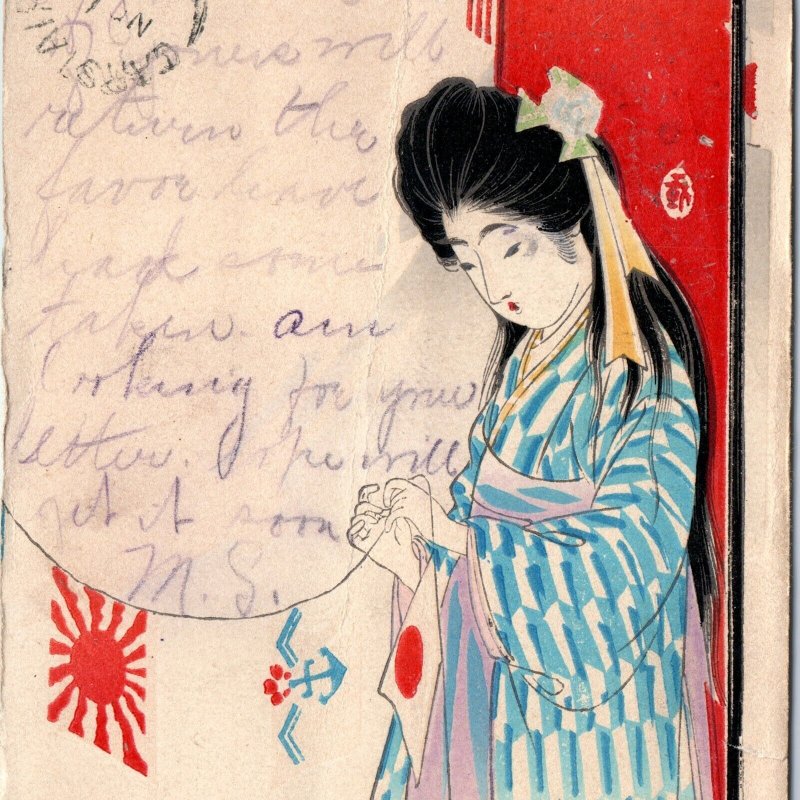 will
return the
favor leave
have some
taken. am
looking for your
letter. hope will
get it soon
M. S.